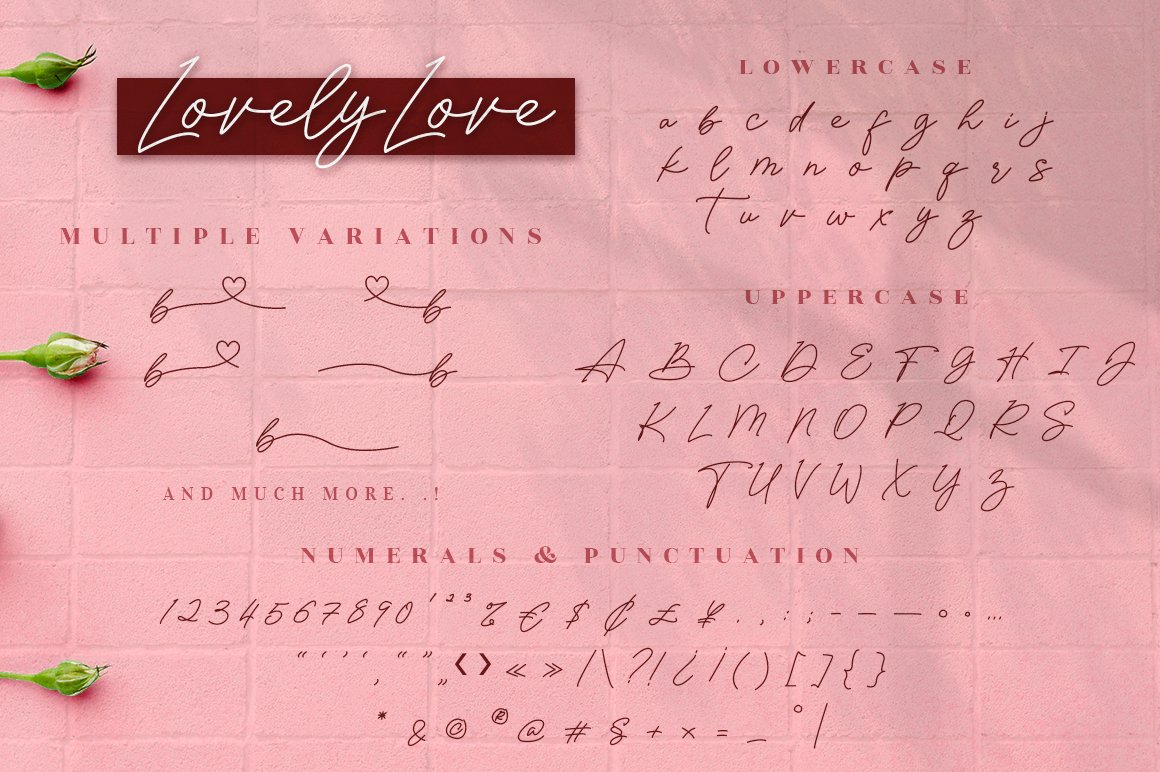 Lovely Love
MULTIPLE VARIATIONS
b b
b b
b
AND MUCH MORE. .!
LOWERCASE
a b c d e f g h i j
k l m n o p q r s
t u v w x y z
UPPERCASE
A B C D E F G H I J
K L M N O P Q R S
T U V W X Y Z
NUMERALS & PUNCTUATION
1 2 3 4 5 6 7 8 9 0 ¹ ² ³ % € $ ₵ £ ¥ . , : ; - – — ° • …
“ ‘ ’ ‚ ‘ “ ” „ ‹ › « » / \ ? ! ¿ ¡ ( ) [ ] { }
* & © ® @ # § + × = _ ° |